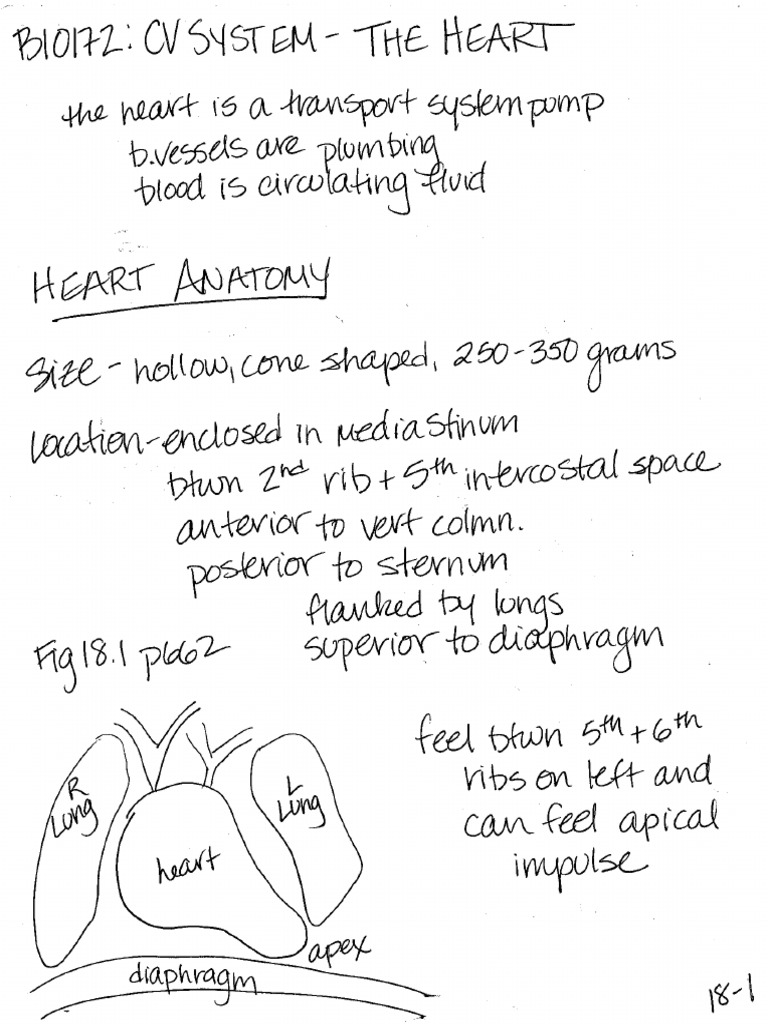 BIO172: CV SYSTEM - THE HEART
the heart is a transport system pump
b.vessels are plumbing
blood is circulating fluid
HEART ANATOMY
Size - hollow, cone shaped, 250-350 grams
Location - enclosed in Mediastinum
btwn 2nd rib + 5th intercostal space
anterior to vert colmn.
posterior to sternum
flanked by lungs
superior to diaphragm
Fig 18.1 p662
feel btwn 5th + 6th
ribs on left and
can feel apical
impulse
R
Lung
L
Lung
heart
apex
diaphragm
18-1